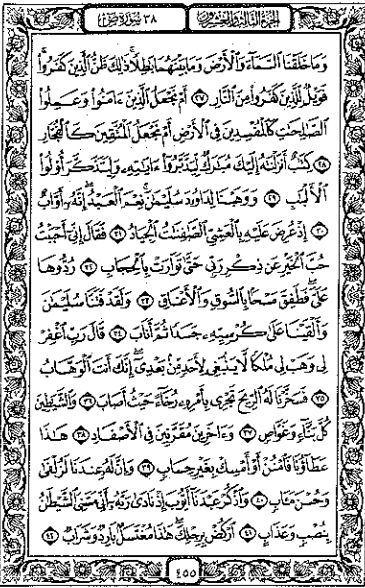 الجزء الثالث والعشرون
٣٨ سورة ص
وَمَا خَلَقْنَا ٱلسَّمَآءَ وَٱلْأَرْضَ وَمَا بَيْنَهُمَا بَٰطِلًا ذَٰلِكَ ظَنُّ ٱلَّذِينَ كَفَرُوا۟
فَوَيْلٌ لِّلَّذِينَ كَفَرُوا۟ مِنَ ٱلنَّارِ ٢٧ أَمْ نَجْعَلُ ٱلَّذِينَ ءَامَنُوا۟ وَعَمِلُوا۟
ٱلصَّٰلِحَٰتِ كَٱلْمُفْسِدِينَ فِى ٱلْأَرْضِ أَمْ نَجْعَلُ ٱلْمُتَّقِينَ كَٱلْفُجَّارِ
٢٨ كِتَٰبٌ أَنزَلْنَٰهُ إِلَيْكَ مُبَٰرَكٌ لِّيَدَّبَّرُوٓا۟ ءَايَٰتِهِۦ وَلِيَتَذَكَّرَ أُو۟لُوا۟
ٱلْأَلْبَٰبِ ٢٩ وَوَهَبْنَا لِدَاوُۥدَ سُلَيْمَٰنَ نِعْمَ ٱلْعَبْدُ إِنَّهُۥٓ أَوَّابٌ
٣٠ إِذْ عُرِضَ عَلَيْهِ بِٱلْعَشِىِّ ٱلصَّٰفِنَٰتُ ٱلْجِيَادُ ٣١ فَقَالَ إِنِّىٓ أَحْبَبْتُ
حُبَّ ٱلْخَيْرِ عَن ذِكْرِ رَبِّى حَتَّىٰ تَوَارَتْ بِٱلْحِجَابِ ٣٢ رُدُّوهَا
عَلَىَّ فَطَفِقَ مَسْحًۢا بِٱلسُّوقِ وَٱلْأَعْنَاقِ ٣٣ وَلَقَدْ فَتَنَّا سُلَيْمَٰنَ
وَأَلْقَيْنَا عَلَىٰ كُرْسِيِّهِۦ جَسَدًا ثُمَّ أَنَابَ ٣٤ قَالَ رَبِّ ٱغْفِرْ
لِى وَهَبْ لِى مُلْكًا لَّا يَنۢبَغِى لِأَحَدٍ مِّنۢ بَعْدِىٓ إِنَّكَ أَنتَ ٱلْوَهَّابُ
٣٥ فَسَخَّرْنَا لَهُ ٱلرِّيحَ تَجْرِى بِأَمْرِهِۦ رُخَآءً حَيْثُ أَصَابَ ٣٦ وَٱلشَّيَٰطِينَ
كُلَّ بَنَّآءٍ وَغَوَّاصٍ ٣٧ وَءَاخَرِينَ مُقَرَّنِينَ فِى ٱلْأَصْفَادِ ٣٨ هَٰذَا
عَطَآؤُنَا فَٱمْنُنْ أَوْ أَمْسِكْ بِغَيْرِ حِسَابٍ ٣٩ وَإِنَّ لَهُۥ عِندَنَا لَزُلْفَىٰ
وَحُسْنَ مَـَٔابٍ ٤٠ وَٱذْكُرْ عَبْدَنَآ أَيُّوبَ إِذْ نَادَىٰ رَبَّهُۥٓ أَنِّى مَسَّنِىَ ٱلشَّيْطَٰنُ
بِنُصْبٍ وَعَذَابٍ ٤١ ٱرْكُضْ بِرِجْلِكَ هَٰذَا مُغْتَسَلٌۢ بَارِدٌ وَشَرَابٌ ٤٢
٤٥٥